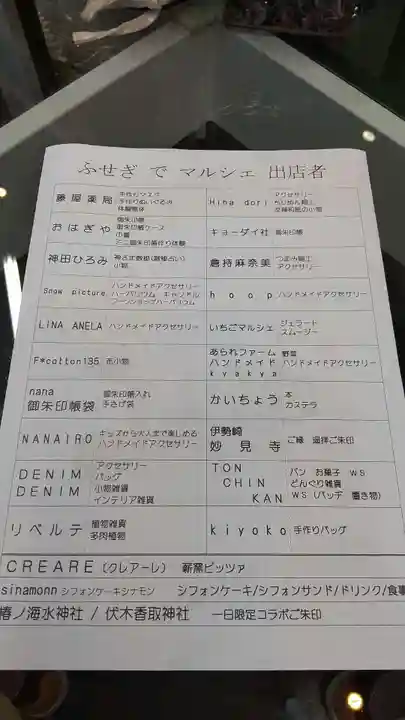 ふせぎ で マルシェ 出店者
藤屋薬局
Hina dori
アクセサリー
おはぎや
御朱印帳ケース
小物
ミニ御朱印帳作り体験
キョーダイ社 御朱印帳
神田ひろみ
小物
倉持麻奈美 つまみ細工
アクセサリー
Snow picture ハンドメイドアクセサリー
ハーバリウム キャンドル
hoop ハンドメイドアクセサリー
LINA ANELA ハンドメイドアクセサリー
いちごマルシェ ジェラート
スムージー
F*cotton135 布小物
あられファーム 野菜
ハンドメイド ハンドメイドアクセサリー
kyakya
nana 御朱印帳入れ
御朱印帳袋 手さげ袋
かいちょう 本
カステラ
NANAIRO キッズから大人まで楽しめる
ハンドメイドアクセサリー
伊勢崎
妙見寺 ご縁 遥拝ご朱印
DENIM アクセサリー
バッグ
DENIM 小物雑貨
インテリア雑貨
TON パン お菓子 WS
CHIN どんぐり雑貨
KAN WS(バッチ 置き物)
リベルテ 植物雑貨
多肉植物
kiyoko 手作りバッグ
CREARE(クレアーレ) 薪窯ピッツァ
sinamonn シフォンケーキシナモン シフォンケーキ/シフォンサンド/ドリンク/食事
椿ノ海水神社 / 伏木香取神社 一日限定コラボご朱印